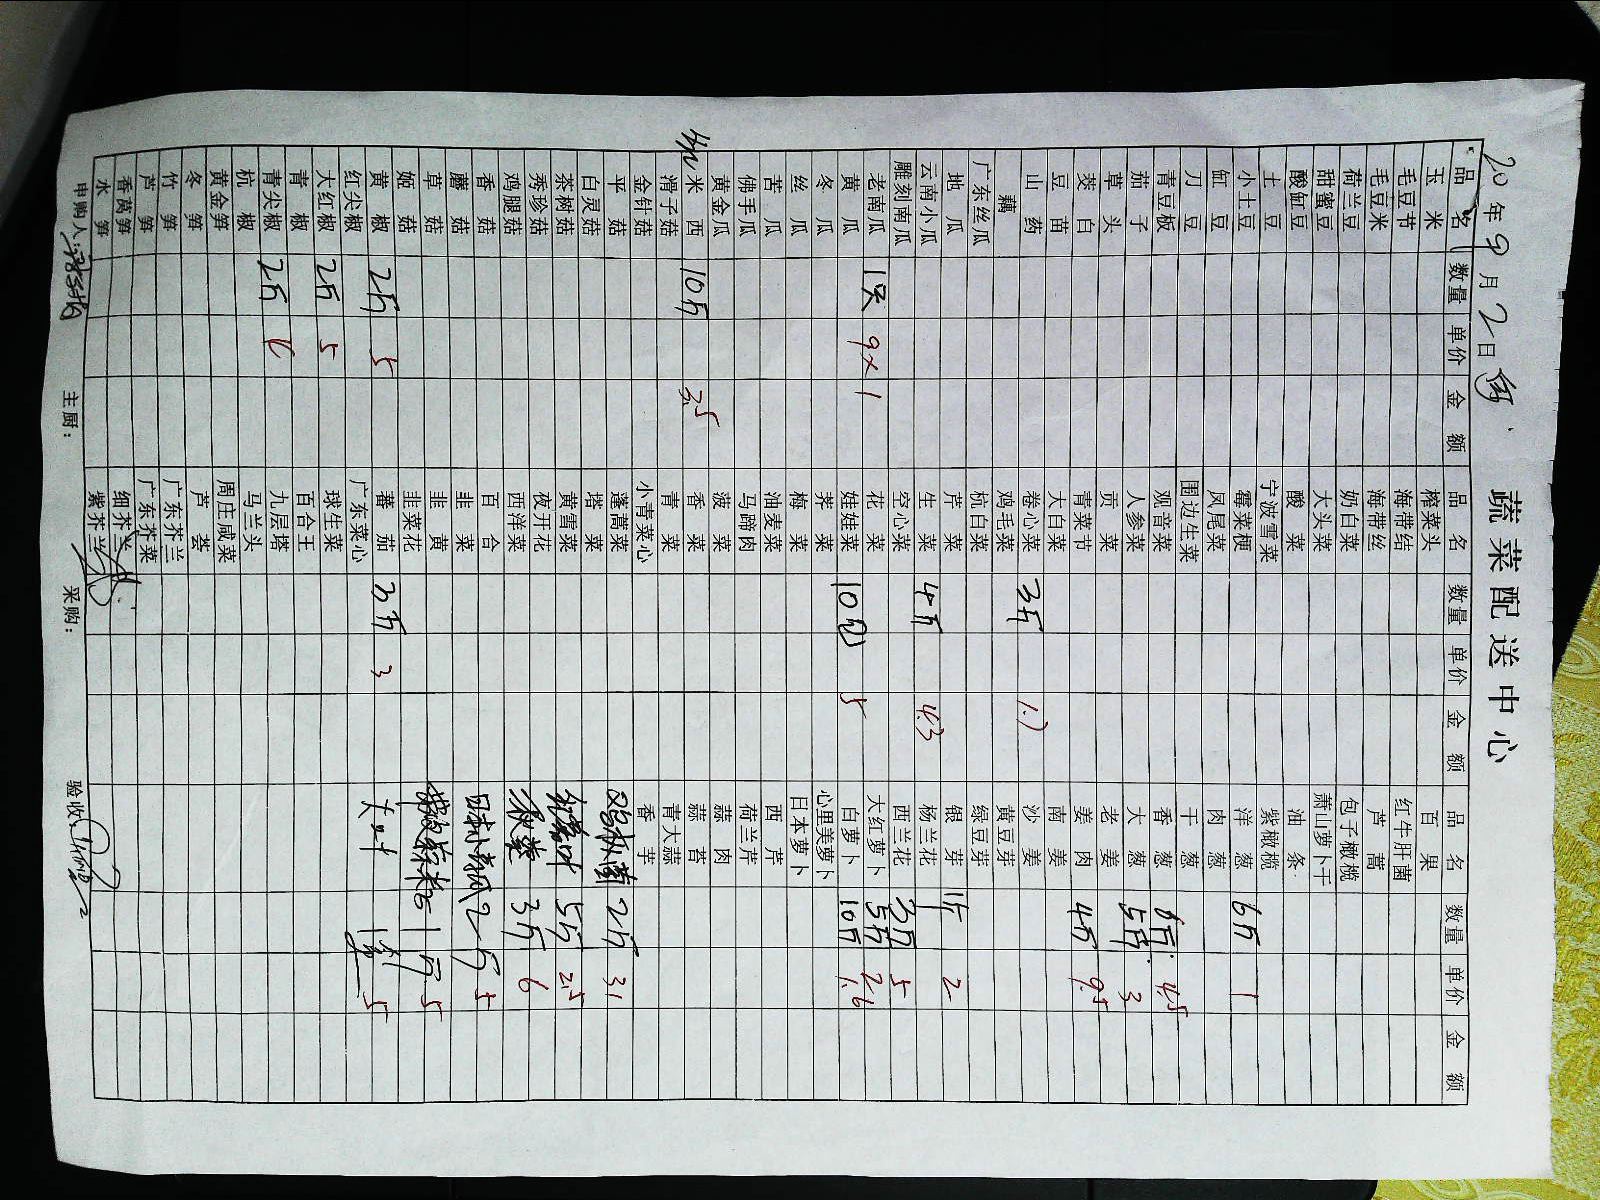 蔬菜配送中心
20 年9月2日
品名 数量 单价 金额 品名 数量 单价 金额 品名 数量 单价 金额
玉米 榨菜头 百果
毛豆节 海带结 红牛肝菌
毛豆米 海带丝 芦蒿
荷兰豆 奶白菜 包子橄榄
甜蜜豆 大头菜 萧山萝卜干
酸缸豆 酸菜 油条
土豆 宁波雪菜 紫橄榄
小土豆 霉菜梗 洋葱 6斤 1
缸豆 凤尾菜 肉葱
刀豆 围边生菜 干葱
青豆板 观音菜 香葱 6斤 4.5
茄子 人参菜 大葱 5斤 3
草头 贡菜 老姜
茭白 青菜节 姜肉 4斤 9.5
豆苗 大白菜 南姜
山药 卷心菜 3斤 1.7 沙姜
藕 鸡毛菜 黄豆芽
广东丝瓜 杭白菜 绿豆芽
地瓜 芹菜 银芽 1斤 2
云南小瓜 生菜 4斤 4.3 杨兰花
雕刻南瓜 空心菜 西兰花 3斤 5
老南瓜 1只 9×1 花菜 大红萝卜 5斤 2.6
黄瓜 娃娃菜 10包 5 白萝卜 10斤 1.6
冬瓜 荠菜 心里美萝卜
丝瓜 梅菜 日本萝卜
苦瓜 油麦菜 西芹
佛手瓜 马蹄肉 荷兰芹
黄金瓜 菠菜 蒜肉
米西 10斤 3.5 香菜 蒜苔
滑子菇 青菜 青大蒜
金针菇 小青菜心 香芋
平菇 蓬蒿菜 鸡枞菌 2斤 31
白灵菇 塔菜
茶树菇 黄雪菜 红薯叶 5斤 2.5
秀珍菇 夜开花 秋葵 3斤 6
鸡腿菇 西洋菜
香菇 百合 日本小黄瓜 2斤 5
蘑菇 韭菜
草菇 韭黄 1斤 5
姬菇 韭菜花
黄椒 2斤 5 蕃茄 3斤 3 大叶 5
红尖椒 广东菜心
大红椒 2斤 5 球生菜
青椒 百合王
青尖椒 2斤 6 九层塔
杭椒 马兰头
黄金笋 周庄咸菜
冬笋 芦荟
竹笋 广东芥兰
芦笋 广东芥菜
香莴笋 细芥兰
水笋 紫芥兰
申购人: 主厨: 采购: 验收: